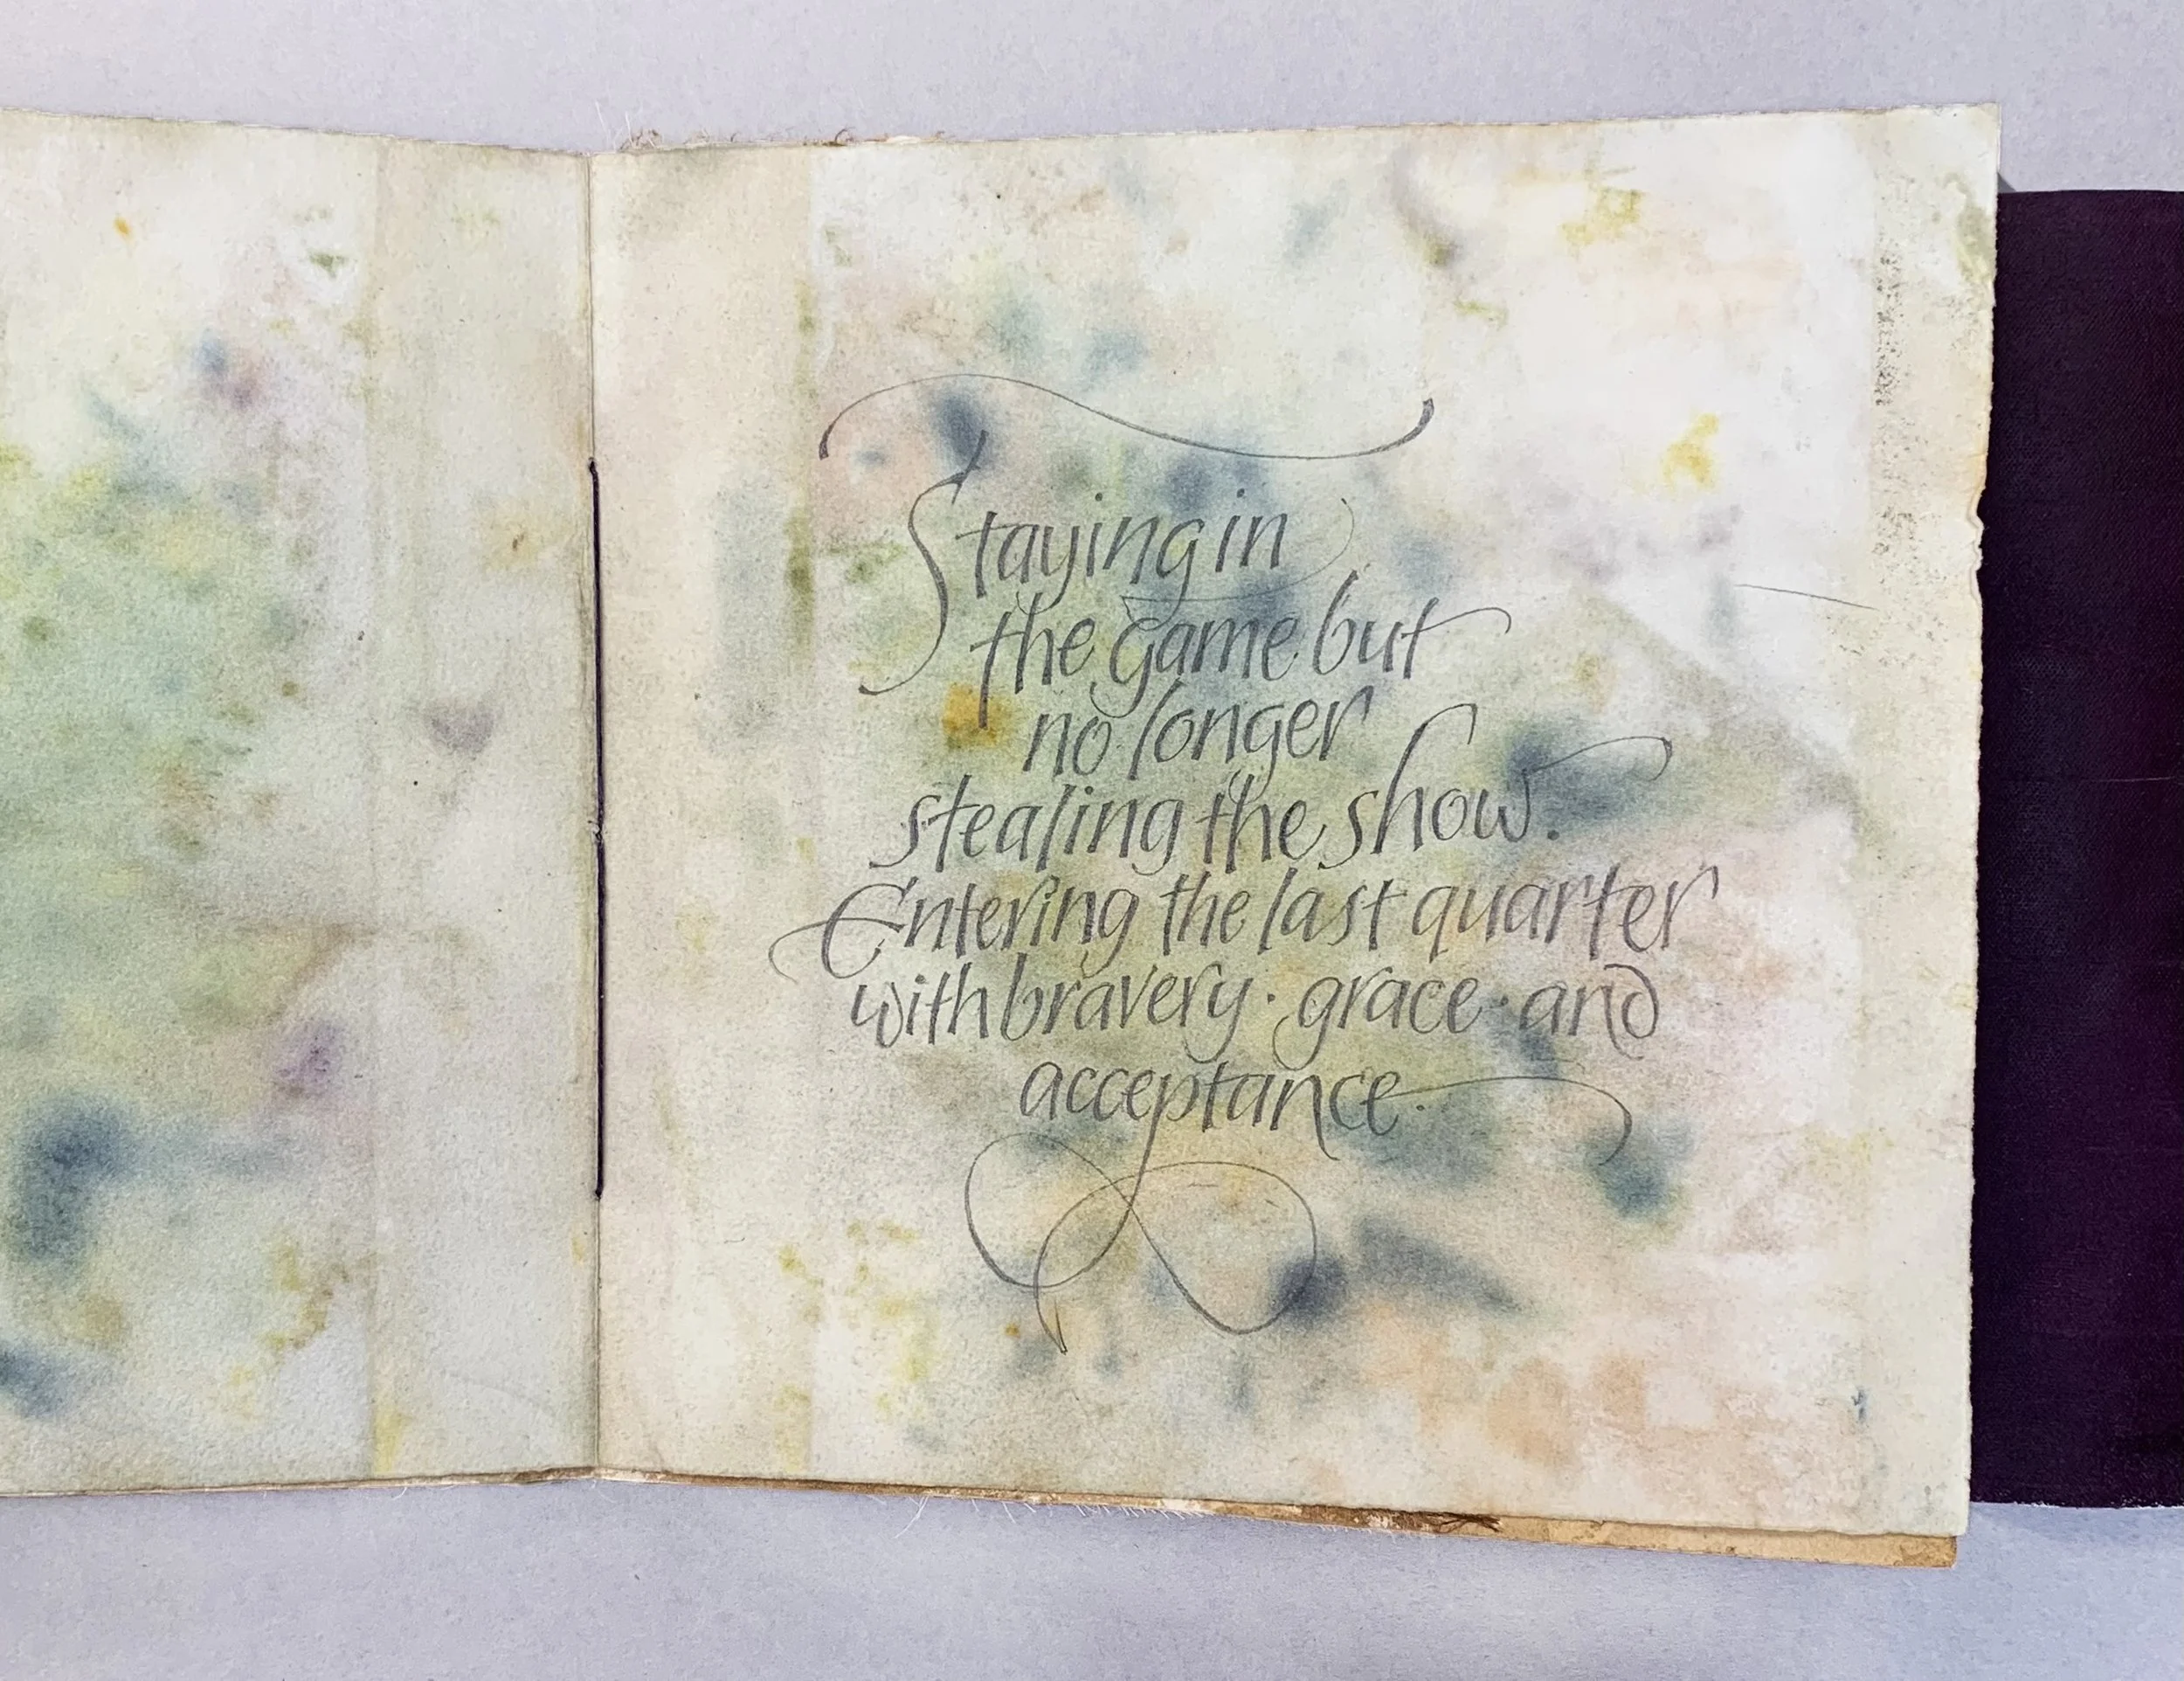 Staying in
the game but
no longer
stealing the show.
Entering the last quarter
with bravery · grace · and
acceptance.